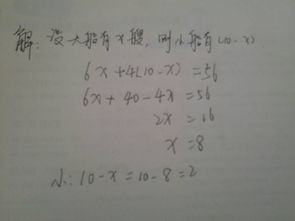 解:设大船有x艘,则小船有(10-x)
6x+4(10-x)=56
6x+40-4x=56
2x=16
x=8
小:10-x=10-8=2